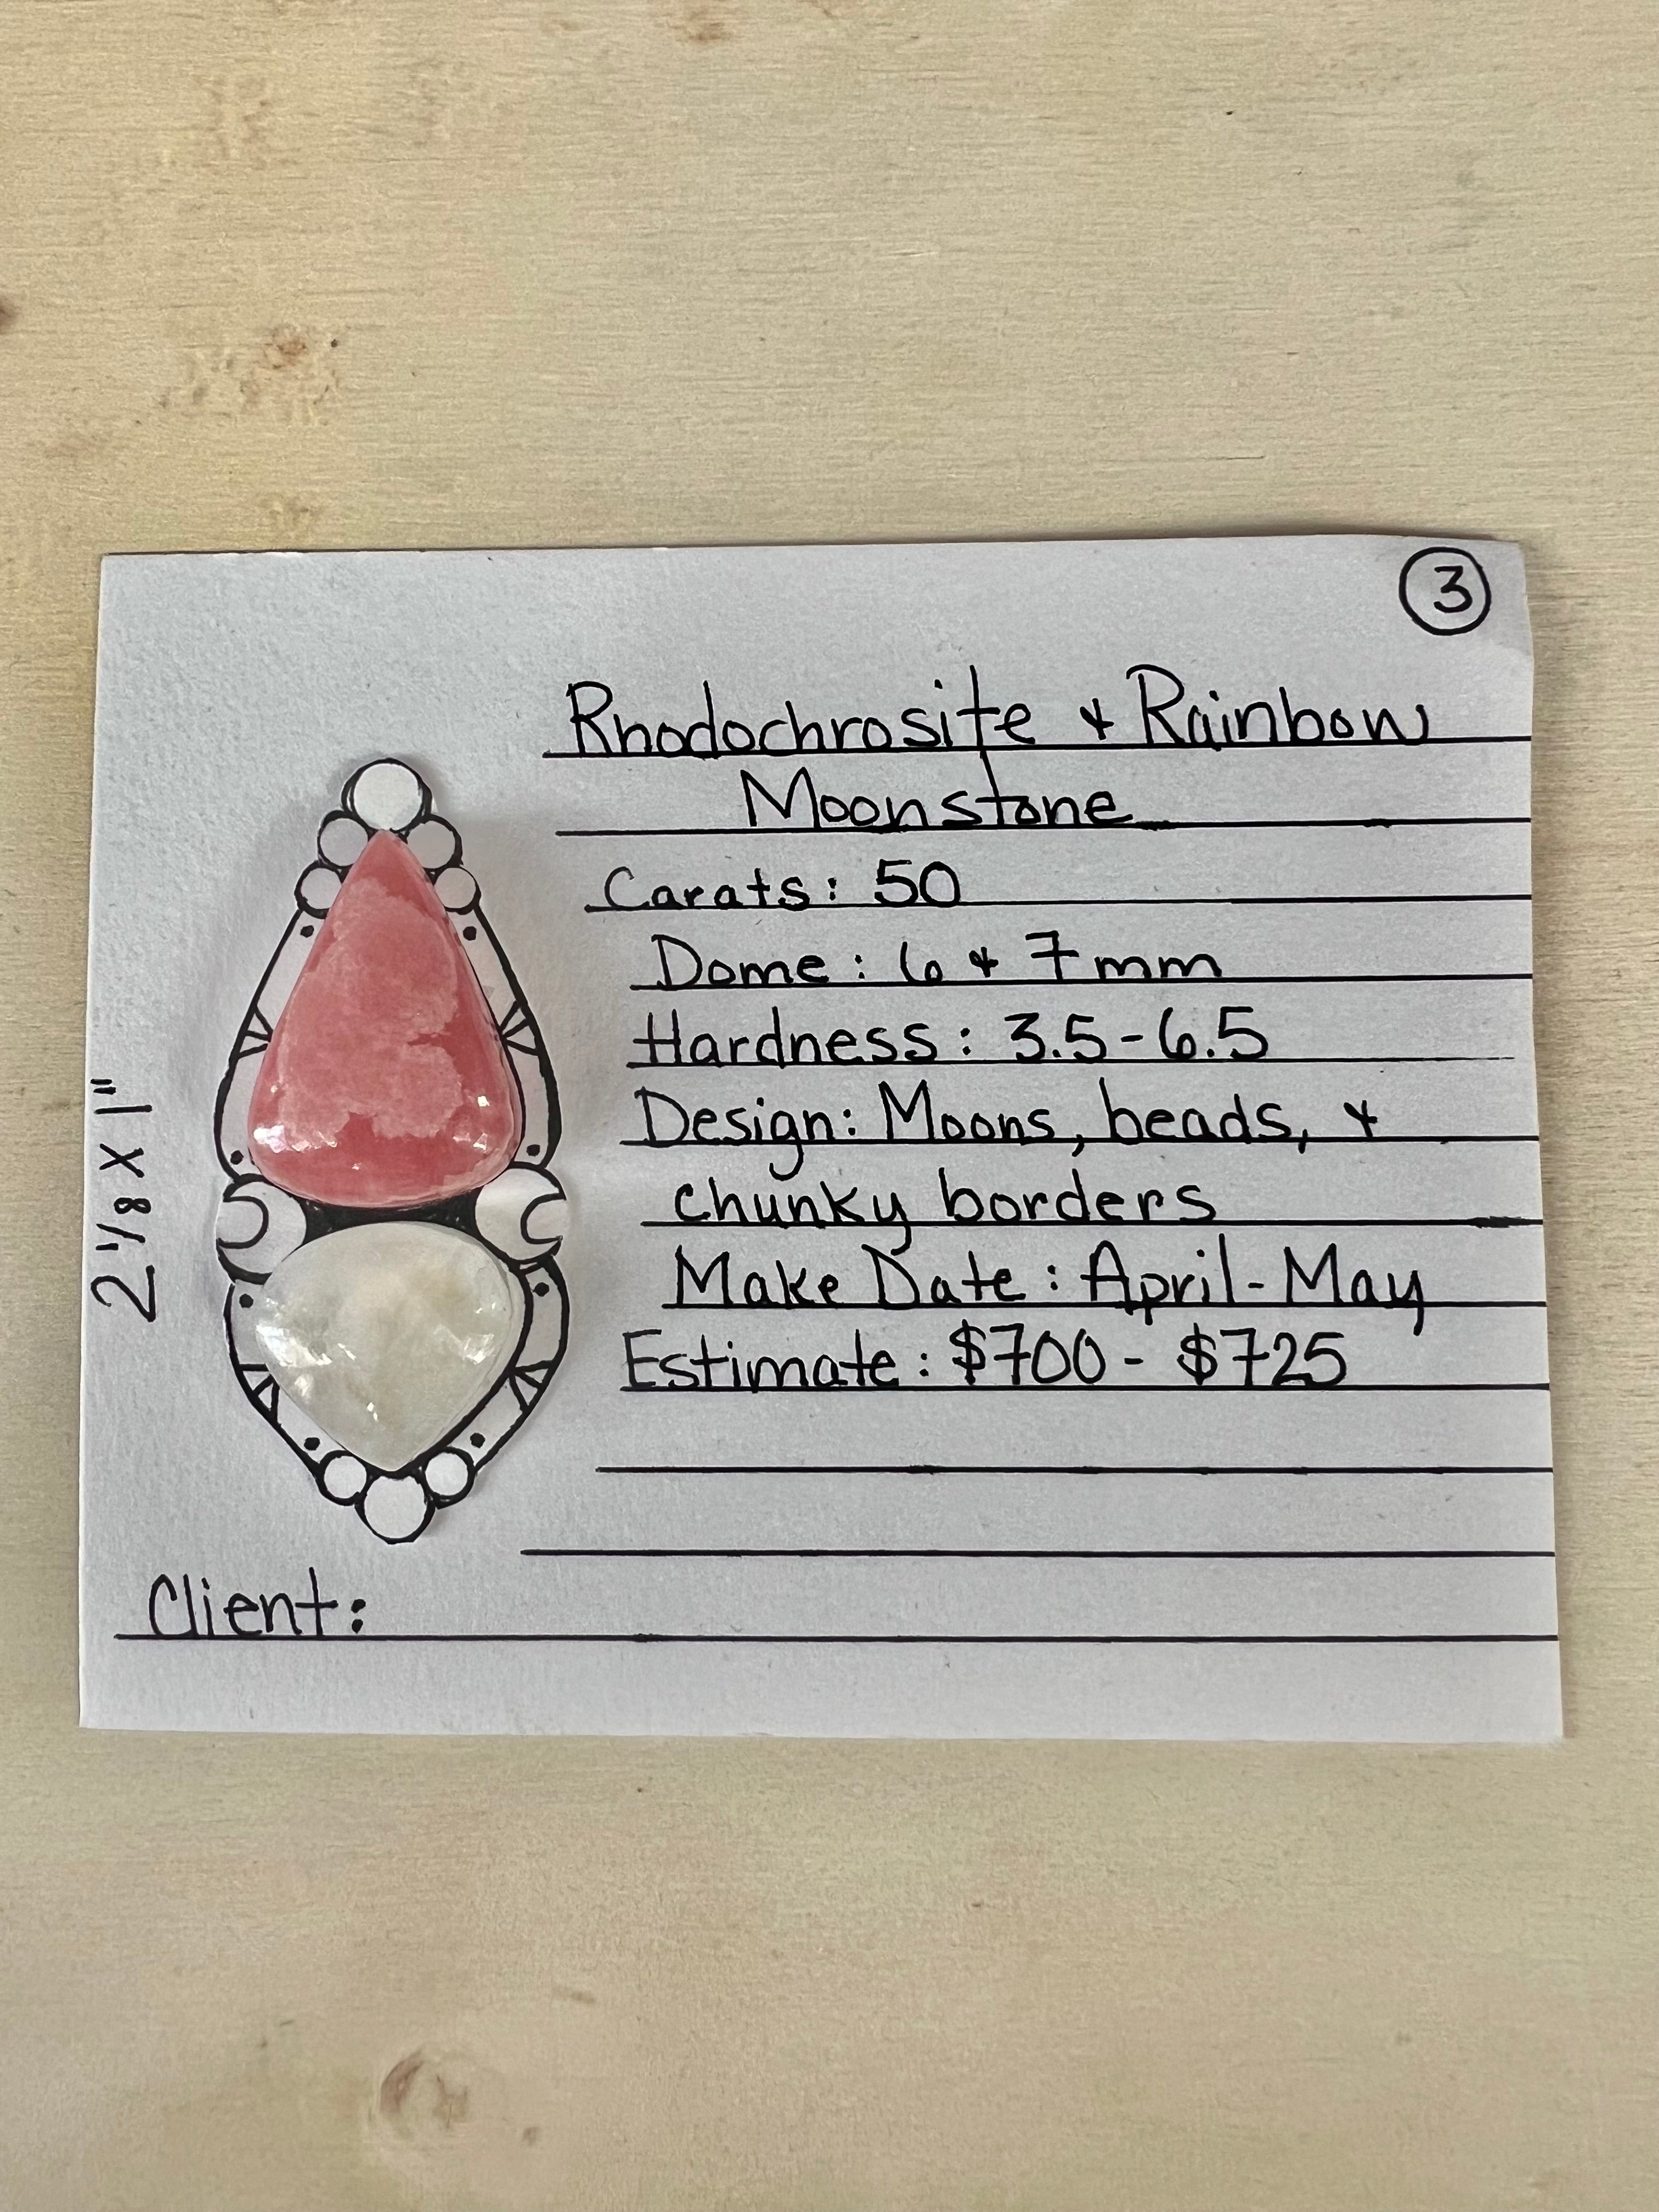 3
Rhodochrosite & Rainbow
Moonstone
Carats: 50
Dome: 6 & 7mm
Hardness: 3.5-6.5
Design: Moons, beads, &
chunky borders
Make Date: April-May
Estimate: $700 - $725
2 1/8 X 1"
Client: